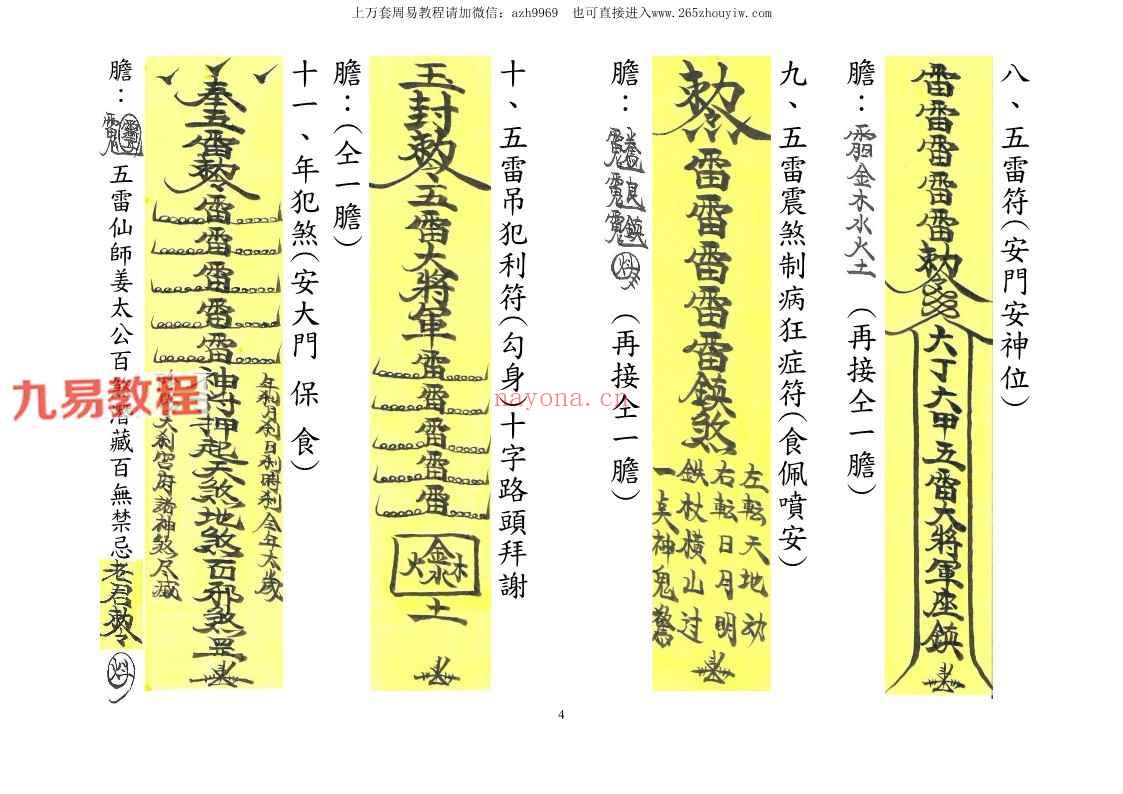 上万套周易教程请加微信：azh9969 也可直接进入www.265zhouyiw.com
八、五雷符(安門安神位)
雷雷雷雷雷勅令
六丁六甲五雷大將軍座鎮
膽：
金木水火土
(再接仝一膽)
九、五雷震煞制病狂症符(食佩噴安)
勅雷雷雷雷雷鎮煞
左転天地动
右転日月明
鉄杖橫山过
一矢神鬼驚
膽：
(再接仝一膽)
十、五雷吊犯利符(勾身)十字路頭拜謝
玉封勅令五雷大將軍雷雷雷雷雷
金木水火土
膽：(仝一膽)
十一、年犯煞(安大門 保 食)
奉五雷勅令雷雷雷雷雷神符押起天煞地煞百邪煞罡
年利月利日利時利今年太歲
大利宮府諸神煞尽藏
膽：
五雷仙師姜太公百煞潛藏百無禁忌老君敕令
九易教程
nayona.cn
4